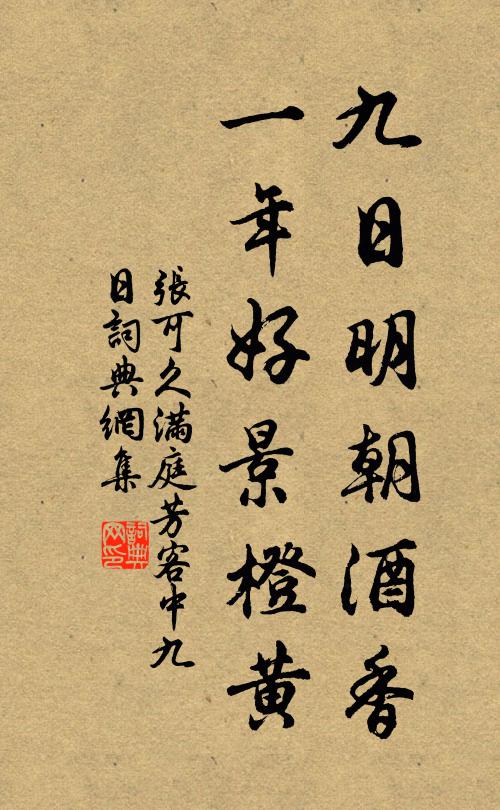 九日明朝酒香
一年好景橙黄
張可久滿庭芳客中九
日詞典網集
詞典网印